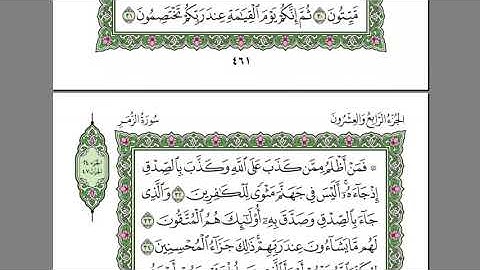 مَّيِّتُونَ ٣٠ ثُمَّ إِنَّكُمْ يَوْمَ ٱلْقِيَٰمَةِ عِندَ رَبِّكُمْ تَخْتَصِمُونَ ٣١
٤٦١
الجزء الرابع والعشرون
سورة الزمر
۞ فَمَنْ أَظْلَمُ مِمَّن كَذَبَ عَلَى ٱللَّهِ وَكَذَّبَ بِٱلصِّدْقِ
إِذْ جَآءَهُۥٓ أَلَيْسَ فِى جَهَنَّمَ مَثْوًى لِّلْكَٰفِرِينَ ٣٢ وَٱلَّذِى
جَآءَ بِٱلصِّدْقِ وَصَدَّقَ بِهِۦٓ أُو۟لَٰٓئِكَ هُمُ ٱلْمُتَّقُونَ ٣٣
لَهُم مَّا يَشَآءُونَ عِندَ رَبِّهِمْ ذَٰلِكَ جَزَآءُ ٱلْمُحْسِنِينَ ٣٤